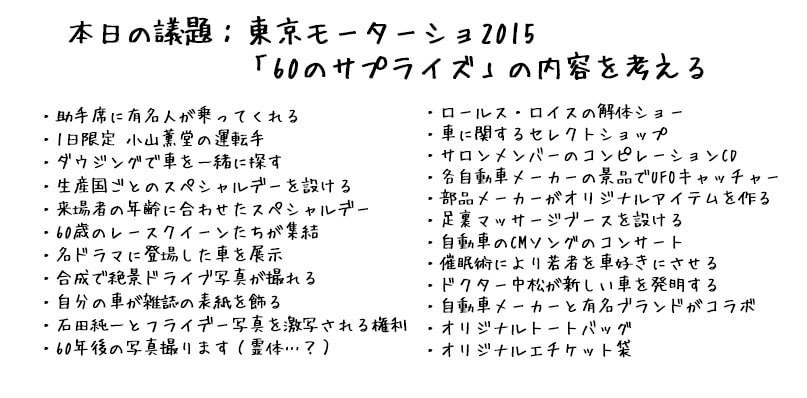 本日の議題：東京モーターショ2015
「60のサプライズ」の内容を考える
・助手席に有名人が乗ってくれる
・1日限定 小山薫堂の運転手
・ダウジングで車を一緒に探す
・生産国ごとのスペシャルデーを設ける
・来場者の年齢に合わせたスペシャルデー
・60歳のレースクイーンたちが集結
・名ドラマに登場した車を展示
・合成で絶景ドライブ写真が撮れる
・自分の車が雑誌の表紙を飾る
・石田純一とフライデー写真を激写される権利
・60年後の写真撮ります（霊体…？）
・ロールス・ロイスの解体ショー
・車に関するセレクトショップ
・サロンメンバーのコンピレーションCD
・各自動車メーカーの景品でUFOキャッチャー
・部品メーカーがオリジナルアイテムを作る
・足裏マッサージブースを設ける
・自動車のCMソングのコンサート
・催眠術により若者を車好きにさせる
・ドクター中松が新しい車を発明する
・自動車メーカーと有名ブランドがコラボ
・オリジナルトートバッグ
・オリジナルエチケット袋